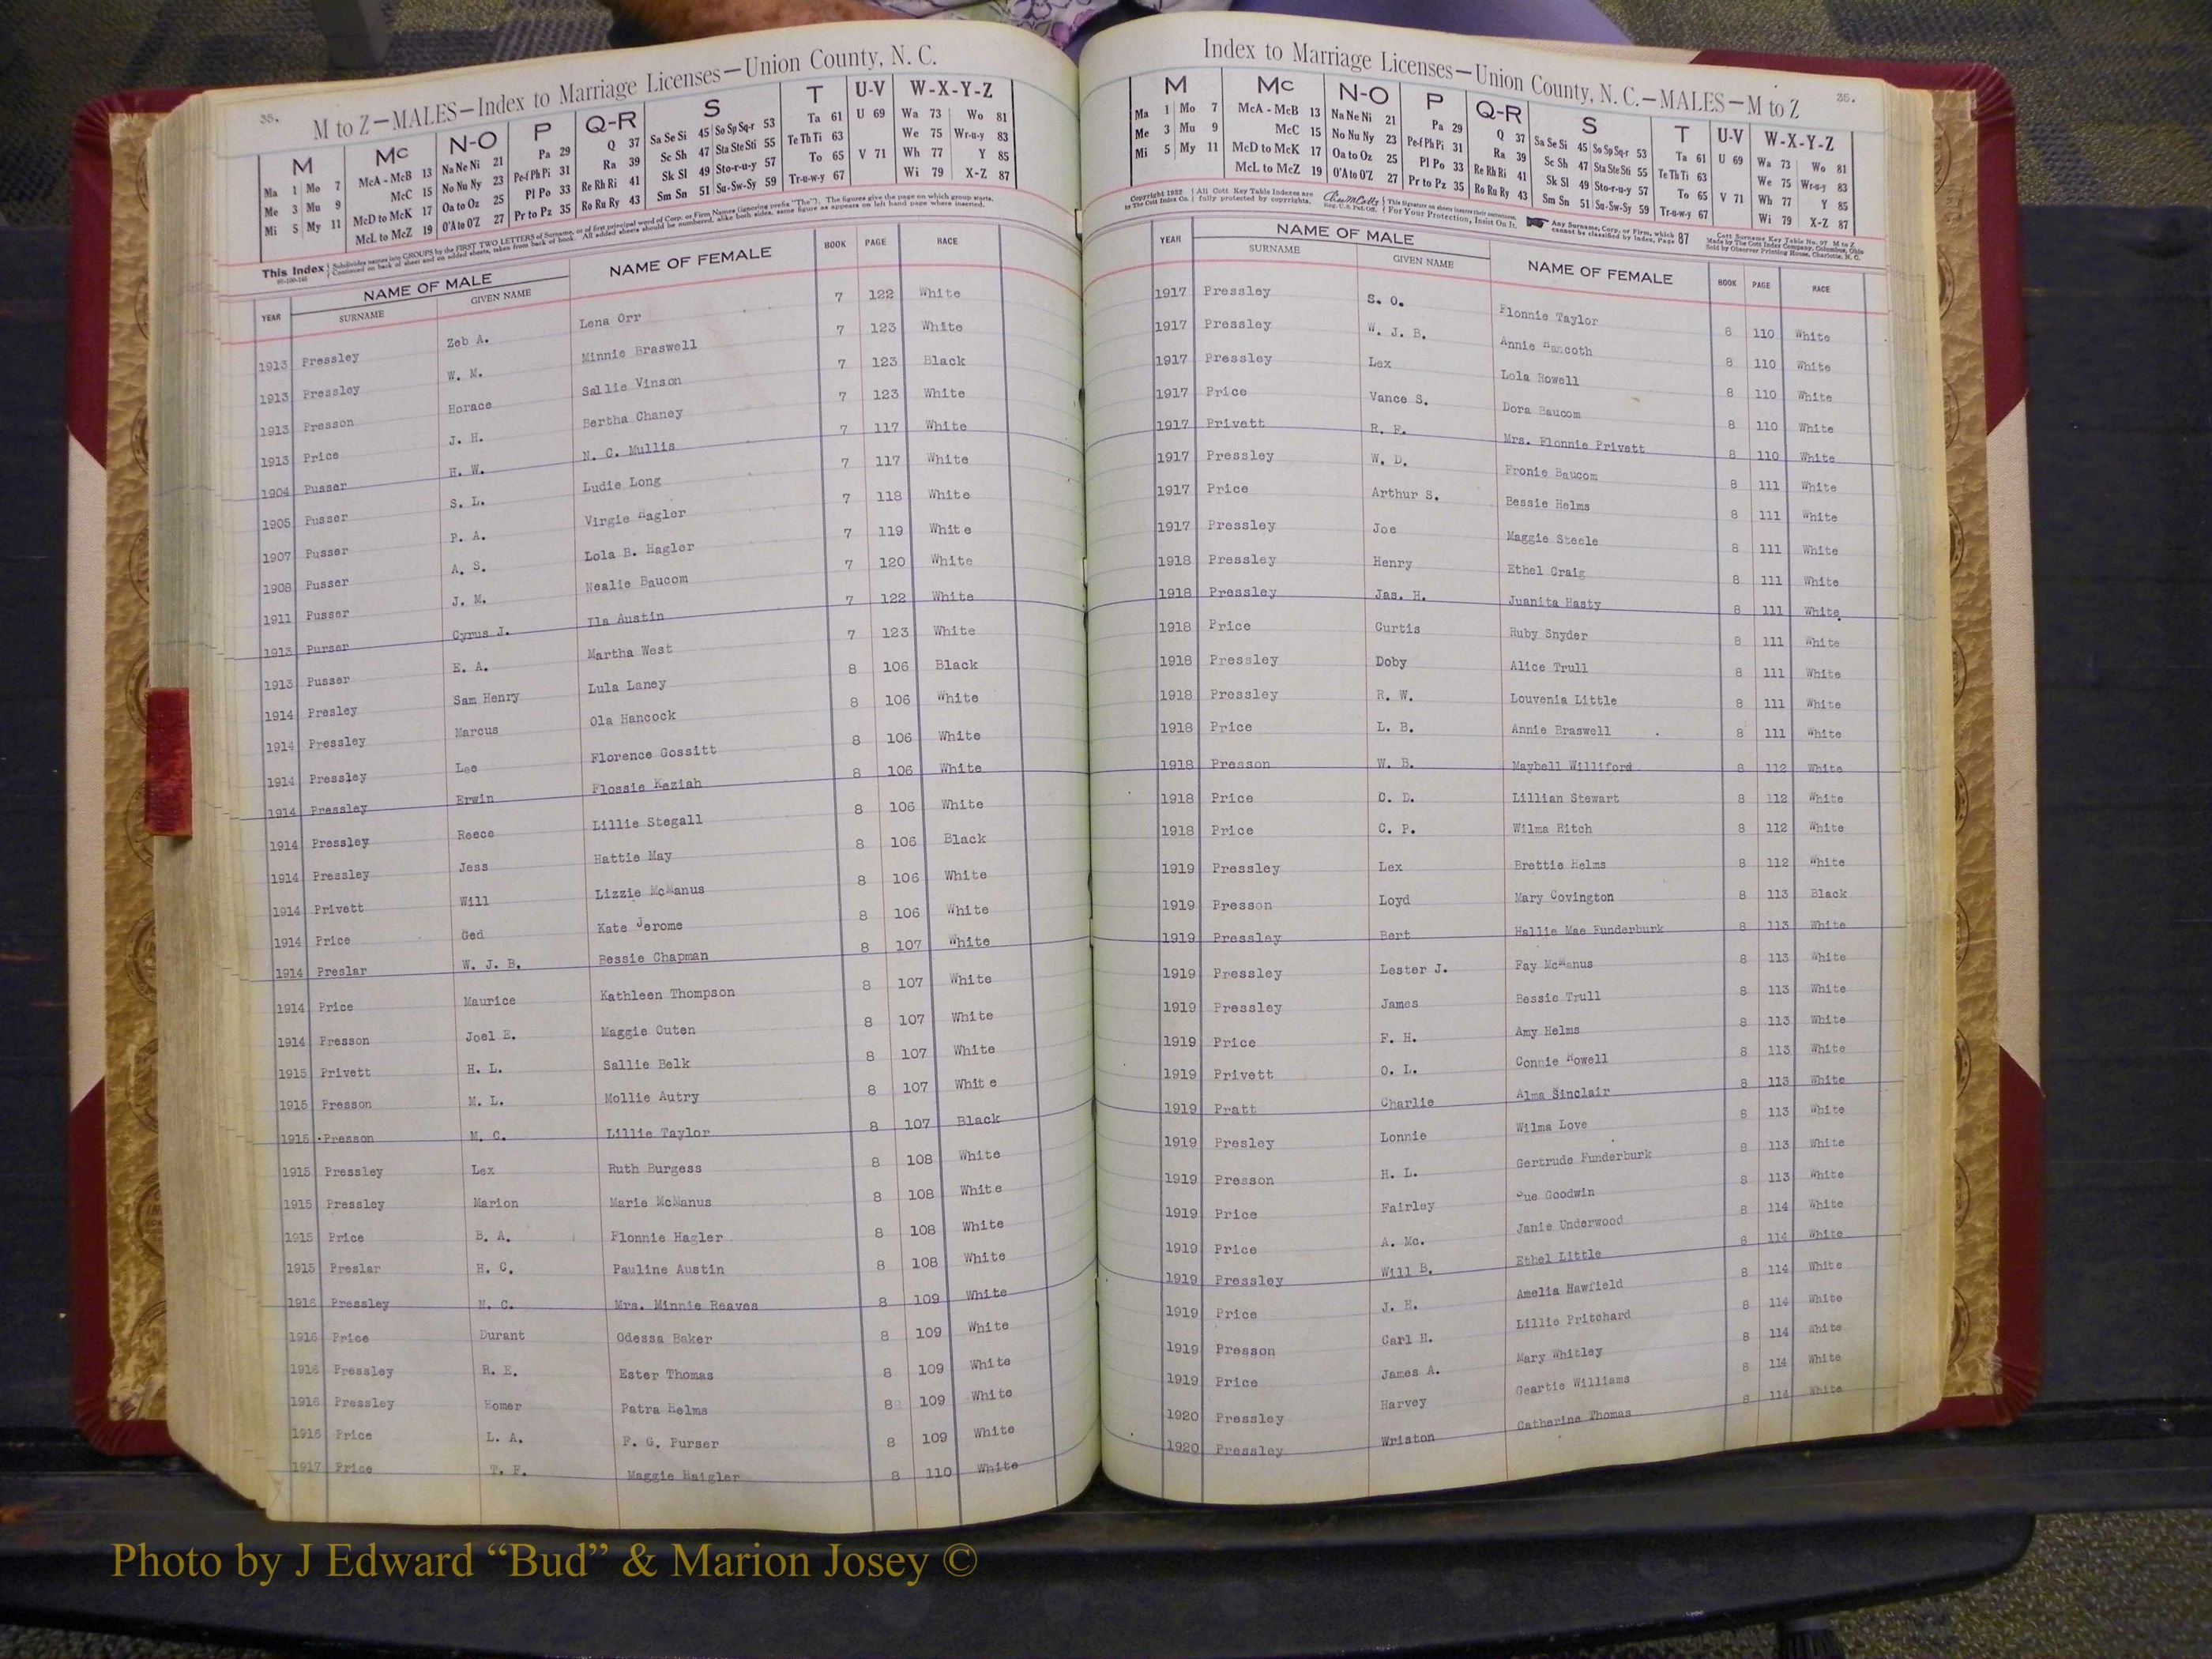 35.
M to Z—MALES—Index to Marriage Licenses—Union County, N. C.
M Mc N-O P Q-R S T U-V W-X-Y-Z
Ma 1 Mo 7 McA - McB 13 Na Ne Ni 21 Pa 29 Q 37 Sa Se Si 45 So Sp Sq-r 53 Ta 61 U 69 Wa 73 Wo 81
Me 3 Mu 9 McC 15 No Nu Ny 23 Pe-f Ph Pi 31 Ra 39 Sc Sh 47 Sta Ste Sti 55 Te Th Ti 63 We 75 Wr-u-y 83
Mi 5 My 11 McD to McK 17 Oa to Oz 25 Pl Po 33 Re Rh Ri 41 Sk Sl 49 Sto-r-u-y 57 To 65 V 71 Wh 77 Y 85
McL to McZ 19 O'A to O'Z 27 Pr to Pz 35 Ro Ru Ry 43 Sm Sn 51 Su-Sw-Sy 59 Tr-u-w-y 67 Wi 79 X-Z 87
This Index Subdivides names into GROUPS by the FIRST TWO LETTERS of Surname, or of first principal word of Corp. or Firm Names (ignoring prefix "The"). The figures give the page on which group starts.
Continued on back of sheet and on added sheets, taken from back of book. All added sheets should be numbered, alike both sides, same figure as appears on left hand page where inserted.
YEAR NAME OF MALE NAME OF FEMALE BOOK PAGE RACE
SURNAME GIVEN NAME
1913 Pressley Zeb A. Lena Orr 7 122 White
1913 Pressley W. M. Minnie Braswell 7 123 White
1913 Presson Horace Sallie Vinson 7 123 Black
1913 Price J. H. Bertha Chaney 7 123 White
1904 Pusser H. W. N. C. Mullis 7 117 White
1905 Pusser S. L. Ludie Long 7 117 White
1907 Pusser P. A. Virgie Hagler 7 118 White
1908 Pusser A. S. Lola B. Hagler 7 119 White
1911 Pusser J. M. Nealie Baucom 7 120 White
1913 Purser Cyrus J. Ila Austin 7 122 White
1913 Pusser E. A. Martha West 7 123 White
1914 Presley Sam Henry Lula Laney 8 106 Black
1914 Pressley Marcus Ola Hancock 8 106 White
1914 Pressley Lee Florence Gossitt 8 106 White
1914 Pressley Erwin Flossie Keziah 8 106 White
1914 Pressley Reece Lillie Stegall 8 106 White
1914 Pressley Jess Hattie May 8 106 Black
1914 Privett Will Lizzie McManus 8 106 White
1914 Price Ged Kate Jerome 8 106 White
1914 Preslar W. J. B. Bessie Chapman 8 107 White
1914 Price Maurice Kathleen Thompson 8 107 White
1914 Presson Joel E. Maggie Outen 8 107 White
1915 Privett H. L. Sallie Belk 8 107 White
1915 Presson M. L. Mollie Autry 8 107 White
1915 Presson M. C. Lillie Taylor 8 107 Black
1915 Pressley Lex Ruth Burgess 8 108 White
1915 Pressley Marion Marie McManus 8 108 White
1915 Price B. A. Flonnie Hagler 8 108 White
1915 Preslar H. C. Pauline Austin 8 108 White
1916 Pressley N. C. Mrs. Minnie Reaves 8 109 White
1916 Price Durant Odessa Baker 8 109 White
1916 Pressley R. E. Ester Thomas 8 109 White
1916 Pressley Homer Patra Helms 8 109 White
1916 Price L. A. F. G. Purser 8 109 White
1917 Price T. F. Maggie Haigler 8 110 White
Index to Marriage Licenses—Union County, N. C.—MALES—M to Z
35.
M Mc N-O P Q-R S T U-V W-X-Y-Z
Ma 1 Mo 7 McA - McB 13 Na Ne Ni 21 Pa 29 Q 37 Sa Se Si 45 So Sp Sq-r 53 Ta 61 U 69 Wa 73 Wo 81
Me 3 Mu 9 McC 15 No Nu Ny 23 Pe-f Ph Pi 31 Ra 39 Sc Sh 47 Sta Ste Sti 55 Te Th Ti 63 We 75 Wr-u-y 83
Mi 5 My 11 McD to McK 17 Oa to Oz 25 Pl Po 33 Re Rh Ri 41 Sk Sl 49 Sto-r-u-y 57 To 65 V 71 Wh 77 Y 85
McL to McZ 19 O'A to O'Z 27 Pr to Pz 35 Ro Ru Ry 43 Sm Sn 51 Su-Sw-Sy 59 Tr-u-w-y 67 Wi 79 X-Z 87
Copyright 1932 by The Cott Index Co. All Cott Key Table Indexes are fully protected by copyrights. This Signature on sheets insures their correctness. For Your Protection, Insist On It.
Any Surname, Corp. or Firm, which cannot be classified by Index, Page 87
Cott Surname Key Table No. 97 M to Z
Made by The Cott Index Company, Columbus, Ohio
Sold by Observer Printing House, Charlotte, N. C.
YEAR NAME OF MALE NAME OF FEMALE BOOK PAGE RACE
SURNAME GIVEN NAME
1917 Pressley S. O. Flonnie Taylor 8 110 White
1917 Pressley W. J. B. Annie Hancoth 8 110 White
1917 Pressley Lex Lola Rowell 8 110 White
1917 Price Vance S. Dora Baucom 8 110 White
1917 Privett R. F. Mrs. Flonnie Privett 8 110 White
1917 Pressley W. D. Fronie Baucom 8 111 White
1917 Price Arthur S. Bessie Helms 8 111 White
1917 Pressley Joe Maggie Steele 8 111 White
1918 Pressley Henry Ethel Craig 8 111 White
1918 Pressley Jas. H. Juanita Hasty 8 111 White
1918 Price Curtis Ruby Snyder 8 111 White
1918 Pressley Doby Alice Trull 8 111 White
1918 Pressley R. W. Louvenia Little 8 111 White
1918 Price L. B. Annie Braswell 8 111 White
1918 Presson W. B. Maybell Williford 8 112 White
1918 Price C. D. Lillian Stewart 8 112 White
1918 Price C. P. Wilma Ritch 8 112 White
1919 Pressley Lex Brettie Helms 8 112 White
1919 Presson Loyd Mary Covington 8 113 Black
1919 Pressley Bert Hallie Mae Funderburk 8 113 White
1919 Pressley Lester J. Fay McManus 8 113 White
1919 Pressley James Bessie Trull 8 113 White
1919 Price F. H. Amy Helms 8 113 White
1919 Privett O. L. Connie Rowell 8 113 White
1919 Pratt Charlie Alma Sinclair 8 113 White
1919 Presley Lonnie Wilma Love 8 113 White
1919 Presson H. L. Gertrude Funderburk 8 113 White
1919 Price Fairley Sue Goodwin 8 113 White
1919 Price A. Mc. Janie Underwood 8 114 White
1919 Pressley Will B. Ethel Little 8 114 White
1919 Price J. H. Amelia Hawfield 8 114 White
1919 Presson Carl H. Lillie Pritchard 8 114 White
1919 Price James A. Mary Whitley 8 114 White
1920 Pressley Harvey Geartie Williams 8 114 White
1920 Pressley Wriston Catherine Thomas 8 114 White
Photo by J Edward “Bud” & Marion Josey ©